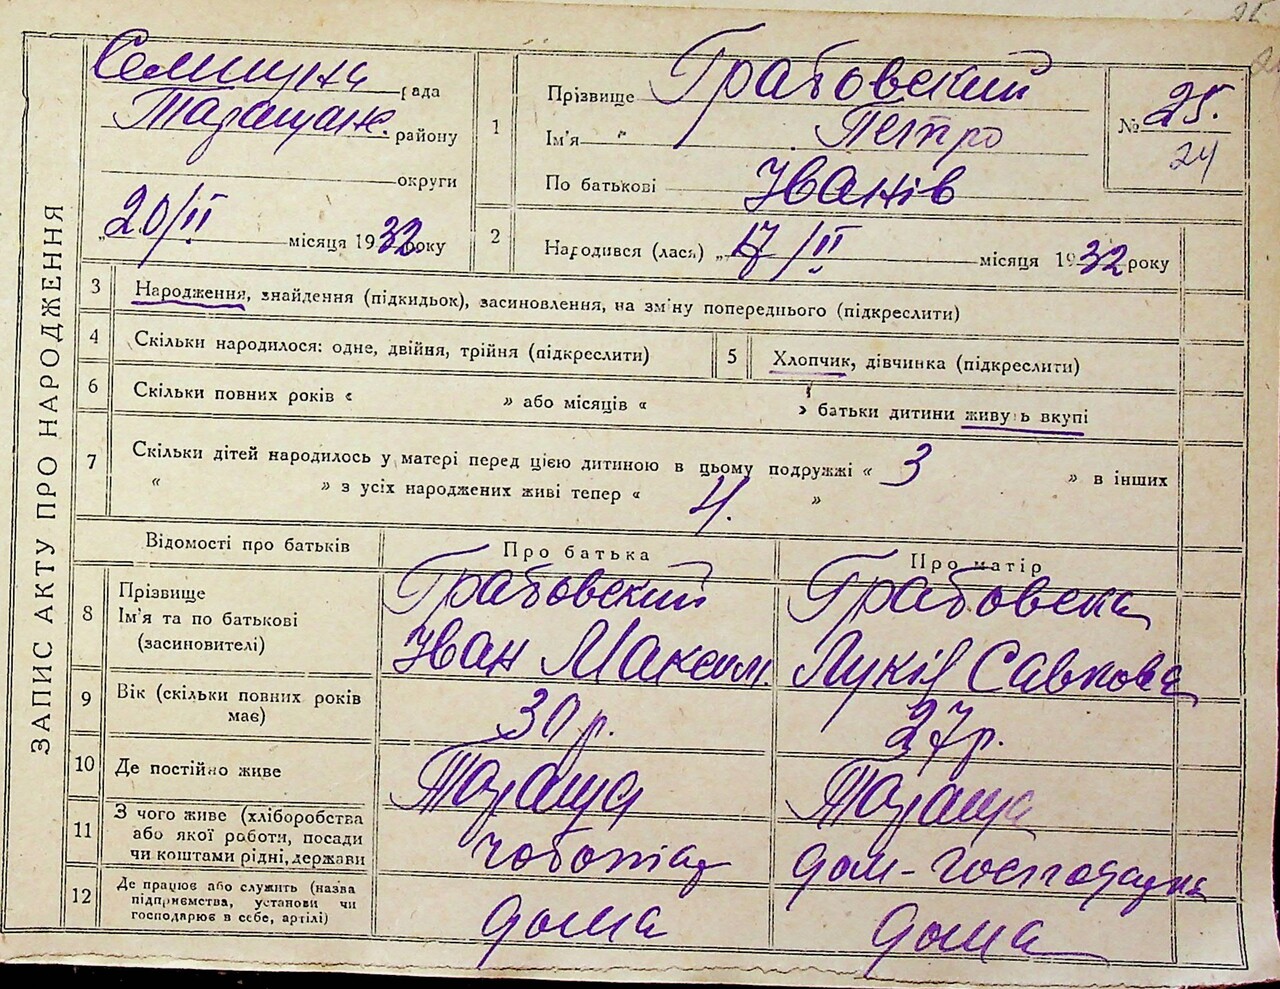 ЗАПИС АКТУ ПРО НАРОДЖЕННЯ
Селищна рада
Таращан. району
округи
„20/II місяця 1932 року
1
Прізвище Грабовский
Ім'я Петро
По батькові Іванів
№ 25.
24
2
Народився (лася) „17/II місяця 1932 року
3
Народження, знайдення (підкидьок), засиновлення, на зміну попереднього (підкреслити)
4
Скільки народилося: одне, двійня, трійня (підкреслити)
5
Хлопчик, дівчинка (підкреслити)
6
Скільки повних років « » або місяців « » батьки дитини живуть вкупі
7
Скільки дітей народилось у матері перед цією дитиною в цьому подружжі « 3 » в інших
« » з усіх народжених живі тепер « 4. »
Відомості про батьків
Про батька
Про матір
8
Прізвище
Ім'я та по батькові
(засиновителі)
Грабовский
Іван Максим.
Грабовска
Лукія Савкова
9
Вік (скільки повних років
має)
30 р.
27 р.
10
Де постійно живе
Тараща
Тараща
11
З чого живе (хліборобства
або якої роботи, посади
чи коштами рідні, держави
чоботар
дом-господарка
12
Де працює або служить (назва
підприємства, установи чи
господарює в себе, артілі)
дома
дома